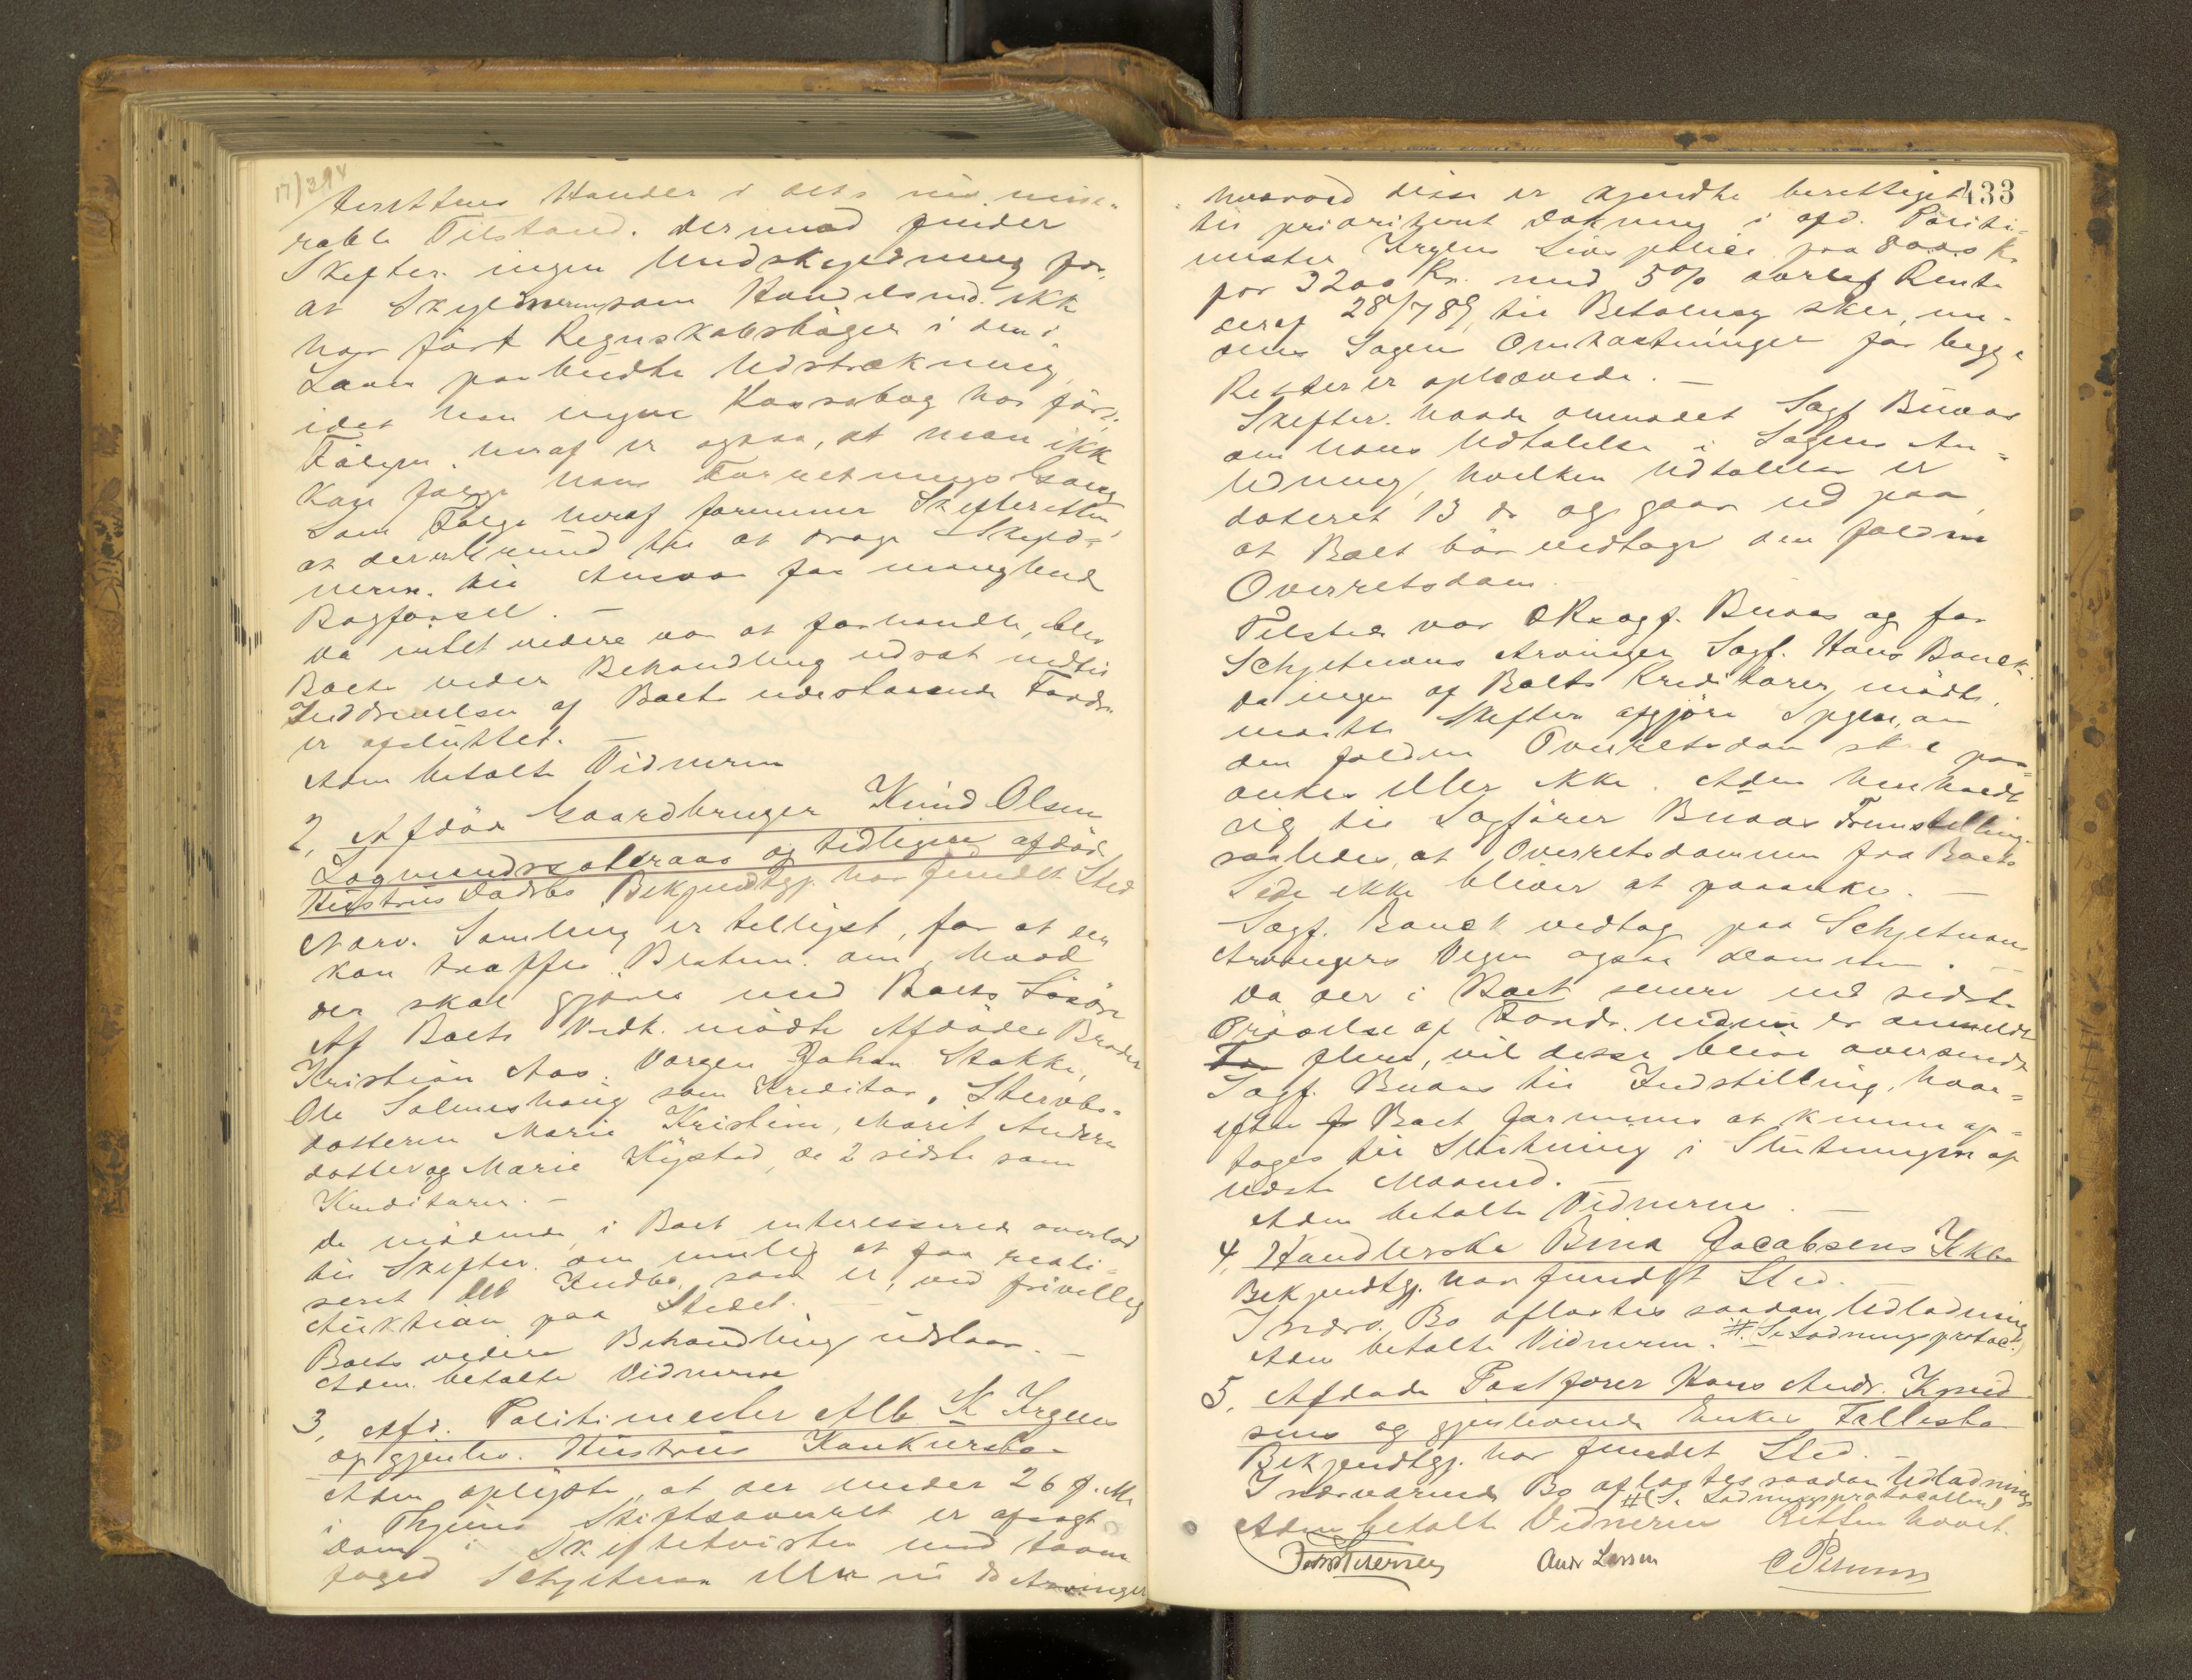 17/3 94
Hænder i dets nu mise-
rable Tilstand. Derimod finder
Skifter. ingen Undskyldning for,
at Skyldneren som Handelsmd. ikke
har ført Regnskabsbøger i den i
Loven paabudte Udstrækning,
idet han ingen Kassabog har ført.
Følgen heraf er ogsaa, at man ikke
kan følge hans Forretnings Gang
Som Følge heraf formener Skifteretten,
at der er Grund til at drage Skyld-
neren til Ansvar for manglende
Bogførsel. —
Da intet videre var at forhandle, blev
Boets videre Behandling udsat indtil
Inddrivelsen af Boets udestaaende Fordr.
er afsluttet. —
Adm betalte Vidnerne
2, Afdøde Gaardbruger Knud Olsen
Lagmandssætraas og tidligere afdøde
Hustrus Dødsbo. Bekjendtgj. har fundet Sted
Nærv. Samling er tillyst, for at der
kan træffes Bestem. om, hvad
der skal gjøres med Boets Løsøre
Af Boets Vedk. mødte Afdødes Broder
Kristian Aas. Værgen Johan Stokke,
Ole Solemshaug som Kreditor, Stervbo-
datteren Marie Kristine, Marit Anders-
datter og Marie Nystad, de 2 sidste som
Kreditorer. —
De mødende i Boet interesserede overlod
til Skifter. om mulig at faa reali-
seret det Indbo, som er, ved frivillig
Auktion paa Stedet. —
Boets videre Behandling udstaar. —
Adm. betalte Vidnerne
3, Afd. Politimester Alb K Krgens
og gjenlev. Hustrus Konkursbo
Adm oplyste, at der under 26 f. M.
i Thjems Stiftsoverret er afsagt
Dom i Skiftetvisten med
foged Schjetnan eller nu do Arvinger
433
hvorved disse er kjendte berettiget
til prioriteret Dækning i afd. Politi-
mester Krgens Livspolice paa 8000 Kr
for 3200 Kr. med 5% aarlig Rente
deraf 28/7 89, til Betaling sker, me-
dens Sagens Omkostninger for begge
Retter er ophævede. —
Skifter. havde anmodet Sagf Buaas
om hans Udtalelse i Sagens An-
ledning, hvilken Udtalelse er
dateret 13 ds og gaar ud paa,
at Boet bør vedtage den faldne
Overretsdom.
Tilstede var ORsagf. Buaas og for
Schjetnans Arvinger Sagf. Hans Bauck.
Da ingen af Boets Kreditorer mødte,
maatte Skifter afgjøre Spgsm, om
den faldne Overretsdom skal paa-
ankes eller ikke. Adm henholdt
sig til Sagfører Buaas Fremstilling
saaledes, at Overretsdommen fra Boets
Side ikke bliver at paaanke. —
Sagf. Bauck vedtog paa Schjetnans
Arvingers Vegne ogsaa Dommen. —
Da der i Boet senere end sidste
Prøvelse af Fordr. er anmeldt
flere, vil disse blive oversendt
Sagf. Buaas til Indstilling, hvor-
efter Boet formenes at kunne op-
tages til Slutning i Slutningen af
næste Maaned. —
Adm betalte Vidnerne. —
4, Handlerske Bina Jacobsens Kkbo
Bekjendtgj. har fundet Sted. —
I nærv. Bo aflagdes saadan Udlodning
Adm betalte Vidnerne. # (Se Lodningsprotoc.)
5, Afdøde Postfører Hans Andr. Knud
sens og gjenlevende Enkes Fællesbo
Bekjendtgj. har fundet Sted. —
I nærværende Bo aflagdes saadan Udlodning
# (Se Lodningsprotocollen)
Adm betalte Vidnerne Retten hævet.
Andr Larsen